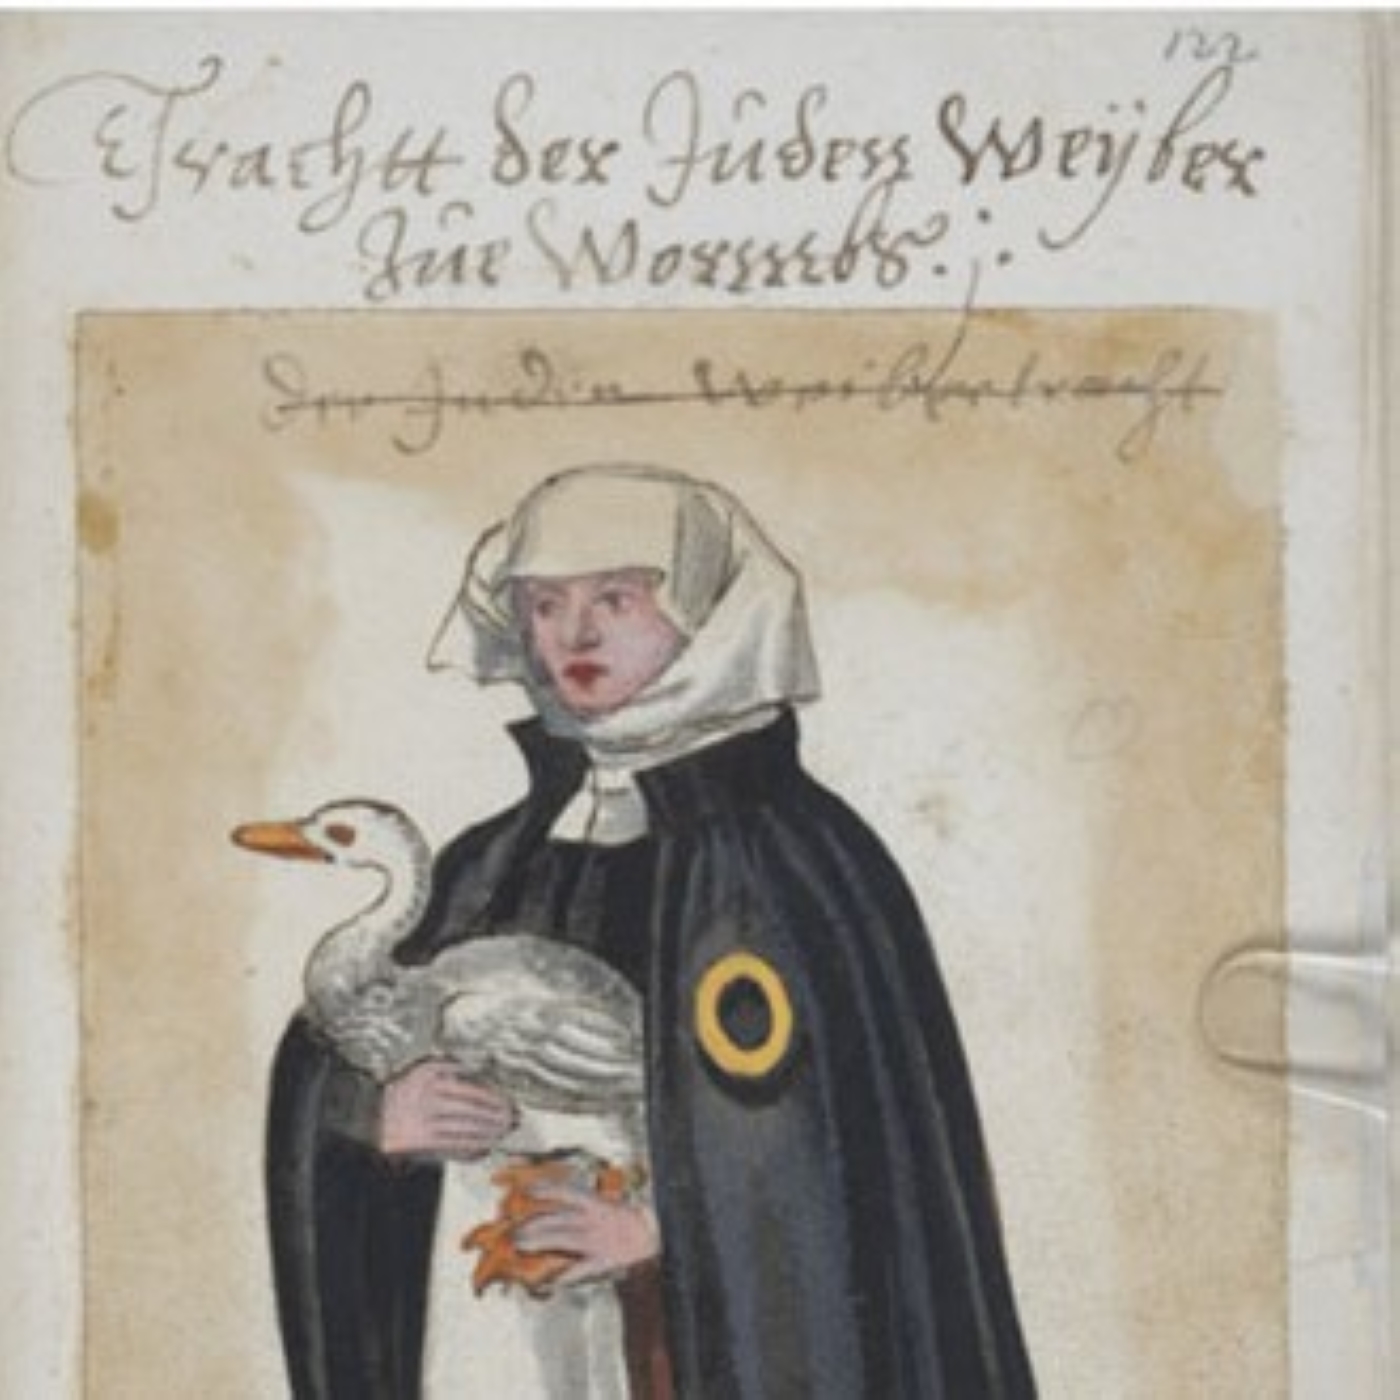 122
Trachtt der Juden Weÿber
zue Wormbs.
der Juden Weibertracht